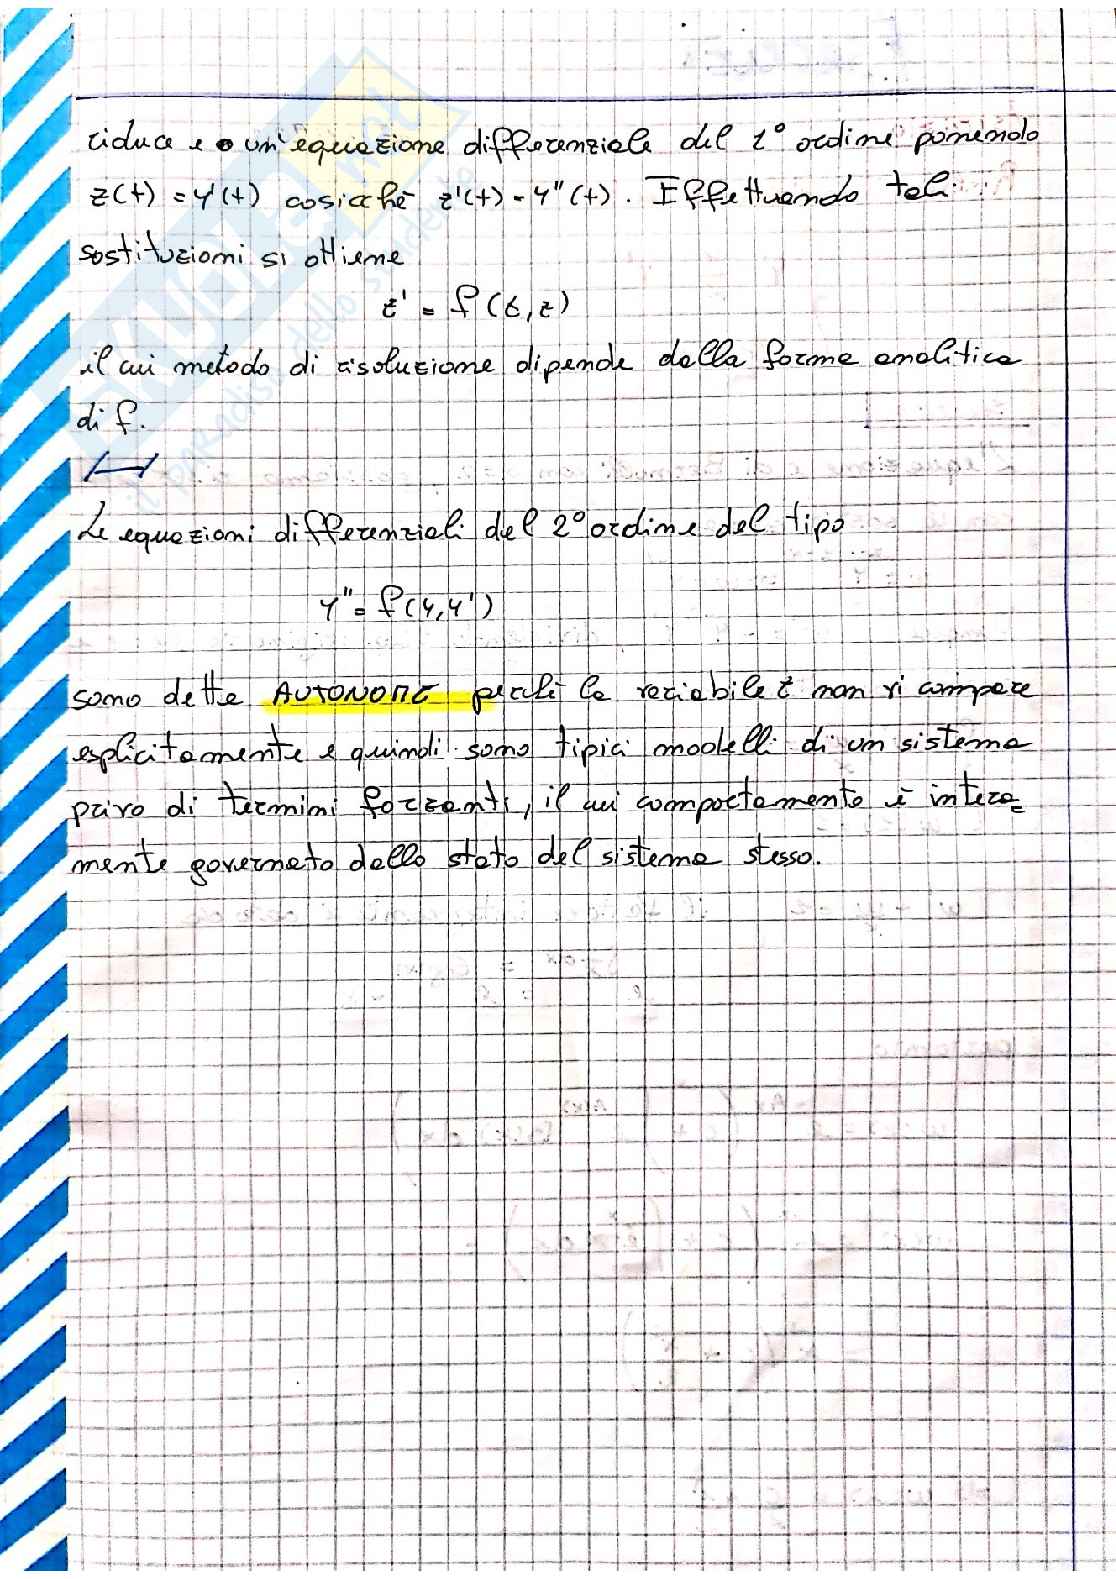 riduce a un'equazione differenziale del 1° ordine ponendo
z(t) = y'(t) cosicché z'(t) = y''(t). Effettuando tali
sostituzioni si ottiene
z' = f(t,z)
il cui metodo di risoluzione dipende dalla forma analitica
di f.
Le equazioni differenziali del 2° ordine del tipo
y'' = f(y,y')
sono dette AUTONOME perché la variabile t non vi compare
esplicitamente e quindi sono tipici modelli di un sistema
privo di termini forzanti, il cui comportamento è intera=
mente governato dallo stato del sistema stesso.